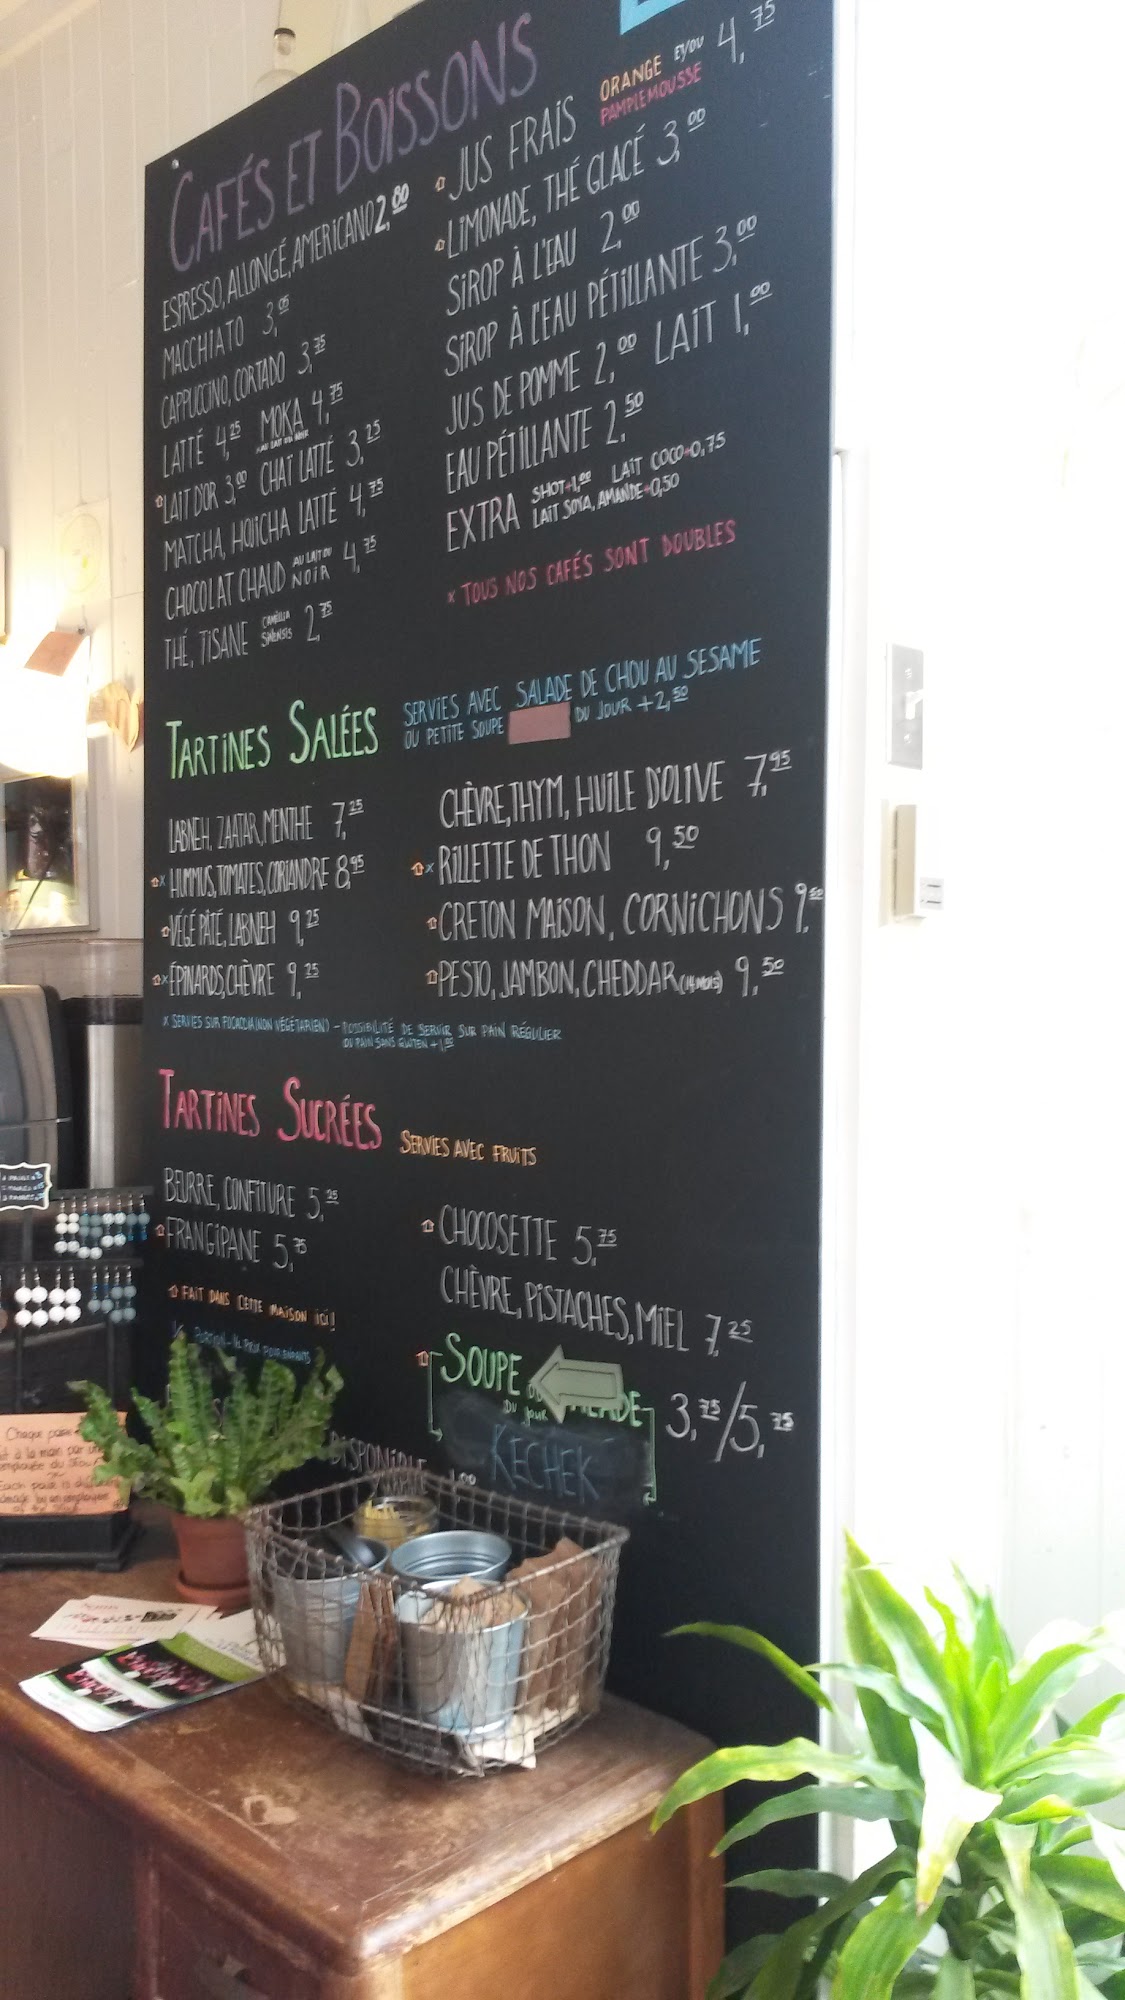 CAFÉS ET BOISSONS
ESPRESSO, ALLONGÉ, AMERICANO 2,80
MACCHIATO 3,05
CAPPUCCINO, CORTADO 3,75
LATTÉ 4,25 MOKA 4,75
AU LAIT OU NOIR
LAIT D'OR 3,00 CHAÏ LATTÉ 3,25
MATCHA, HOJICHA LATTÉ 4,75
CHOCOLAT CHAUD AU LAIT OU NOIR 4,75
THÉ, TISANE CAMELLIA SINENSIS 2,75
JUS FRAIS ORANGE ET/OU PAMPLEMOUSSE 4,75
LIMONADE, THÉ GLACÉ 3,00
SIROP À L'EAU 2,00
SIROP À L'EAU PÉTILLANTE 3,00
JUS DE POMME 2,00 LAIT 1,00
EAU PÉTILLANTE 2,50
EXTRA SHOT+1,00 LAIT COCO+0,75
LAIT SOYA, AMANDE+0,50
× TOUS NOS CAFÉS SONT DOUBLES
TARTINES SALÉES
SERVIES AVEC SALADE DE CHOU AU SESAME
OU PETITE SOUPE DU JOUR +2,50
LABNEH, ZAATAR, MENTHE 7,25
× HUMMUS, TOMATES, CORIANDRE 8,95
VÉGÉ PÂTÉ, LABNEH 9,25
× ÉPINARDS, CHÈVRE 9,25
CHÈVRE, THYM, HUILE D'OLIVE 7,95
× RILLETTE DE THON 9,50
CRETON MAISON, CORNICHONS 9,50
PESTO, JAMBON, CHEDDAR (14 MOIS) 9,50
× SERVIES SUR FOCACCIA (NON VÉGÉTARIEN) - POSSIBILITÉ DE SERVIR SUR PAIN RÉGULIER
OU PAIN SANS GLUTEN +1,00
TARTINES SUCRÉES SERVIES AVEC FRUITS
BEURRE, CONFITURE 5,25
FRANGIPANE 5,75
CHOCOSETTE 5,75
CHÈVRE, PISTACHES, MIEL 7,25
FAIT DANS CETTE MAISON ICI!
1/2 PORTION - 1/2 PRIX POUR ENFANTS
SOUPE
DU JOUR
3,75/5,75
KECHEK
DISPONIBLE
Chaque
à la main par un
employé du
Each is
made by an employee